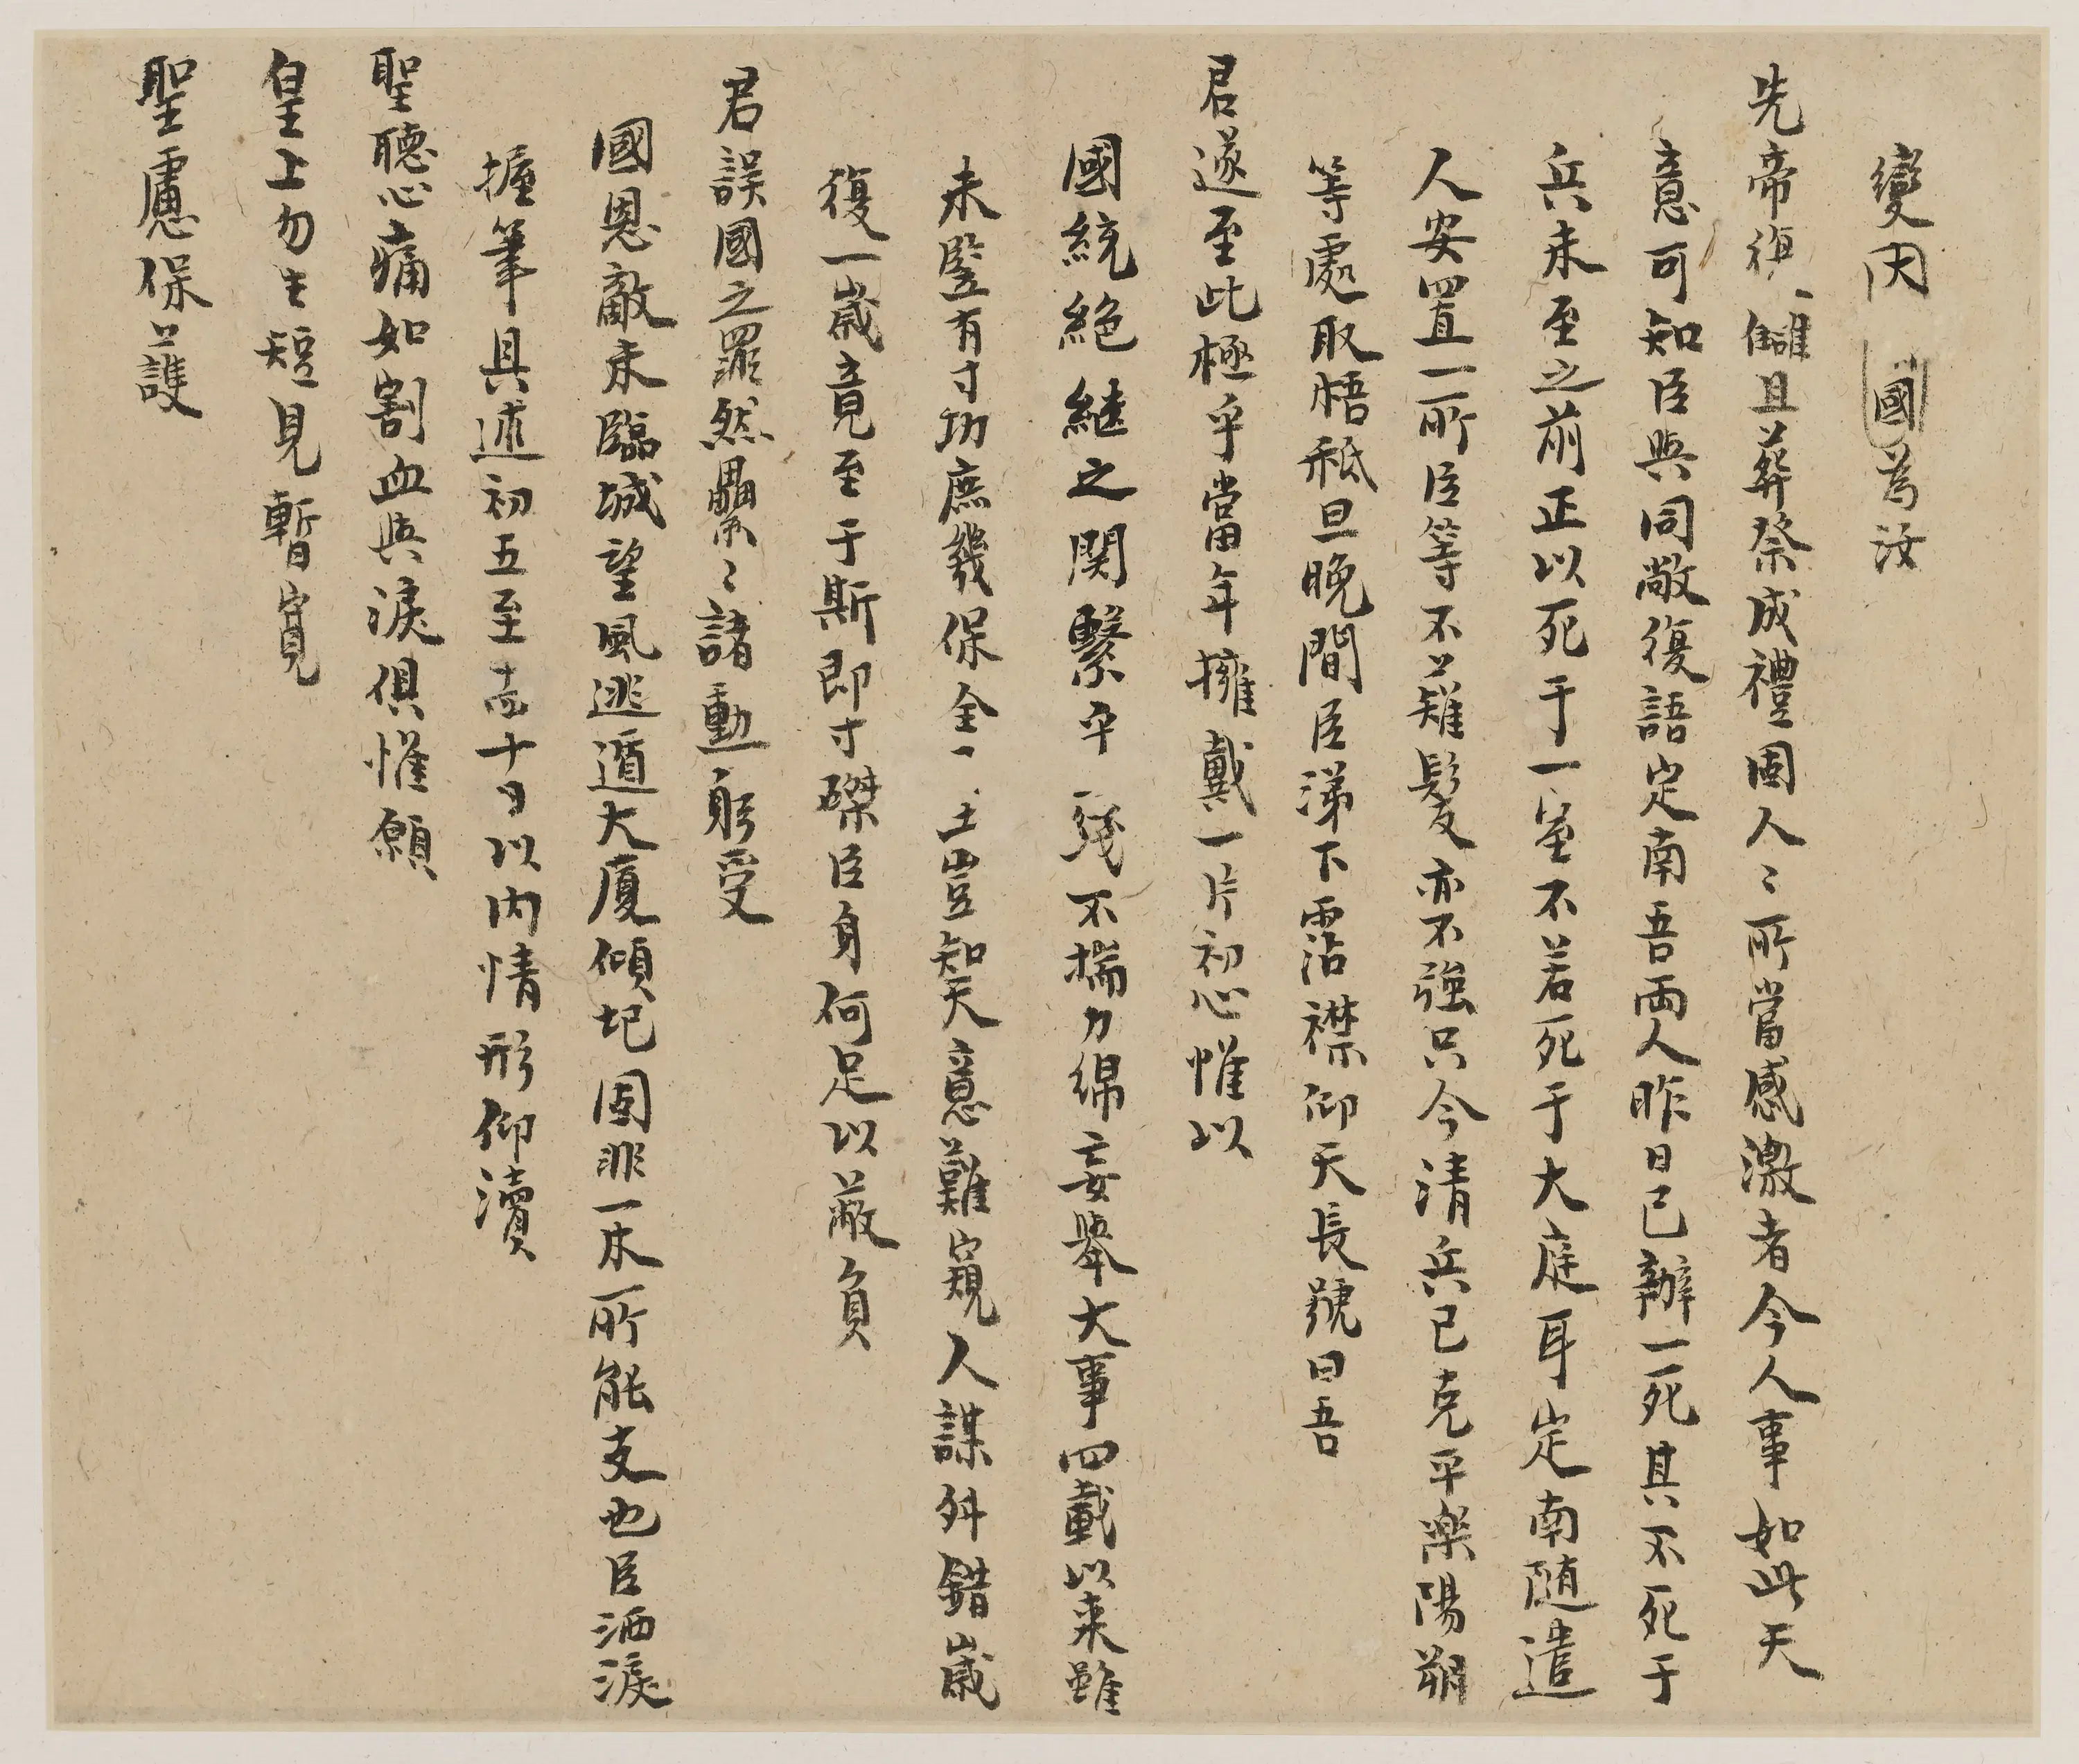 變因國為汝
先帝復讎且葬祭成禮固人〻所當感激者今人事如此天
意可知臣與同敞復語定南吾兩人昨日已辦一死其不死于
兵未至之前正以死于一室不若死于大庭耳定南隨遣
人安置一所臣等不薙髮亦不強只今清兵已克平樂陽朔
等處取梧秪旦晚間臣涕下霑襟仰天長號曰吾
君遂至此極乎當年擁戴一片初心惟以
國統絕繼之関繫乎 綫不揣力綿妄舉大事四載以来雖
未豎有寸功庶幾保全一土豈知天意難窺人謀舛錯歲
復一歲竟至于斯即寸磔臣身何足以蔽負
君誤國之罪然纍〻諸勳躬受
國恩敵未臨城望風逃遁大廈傾圮固非一木所能支也臣洒淚
握筆具述初五至十日以内情形仰瀆
聖聽心痛如割血與淚俱惟願
皇上勿生短見暫寬
聖慮保護